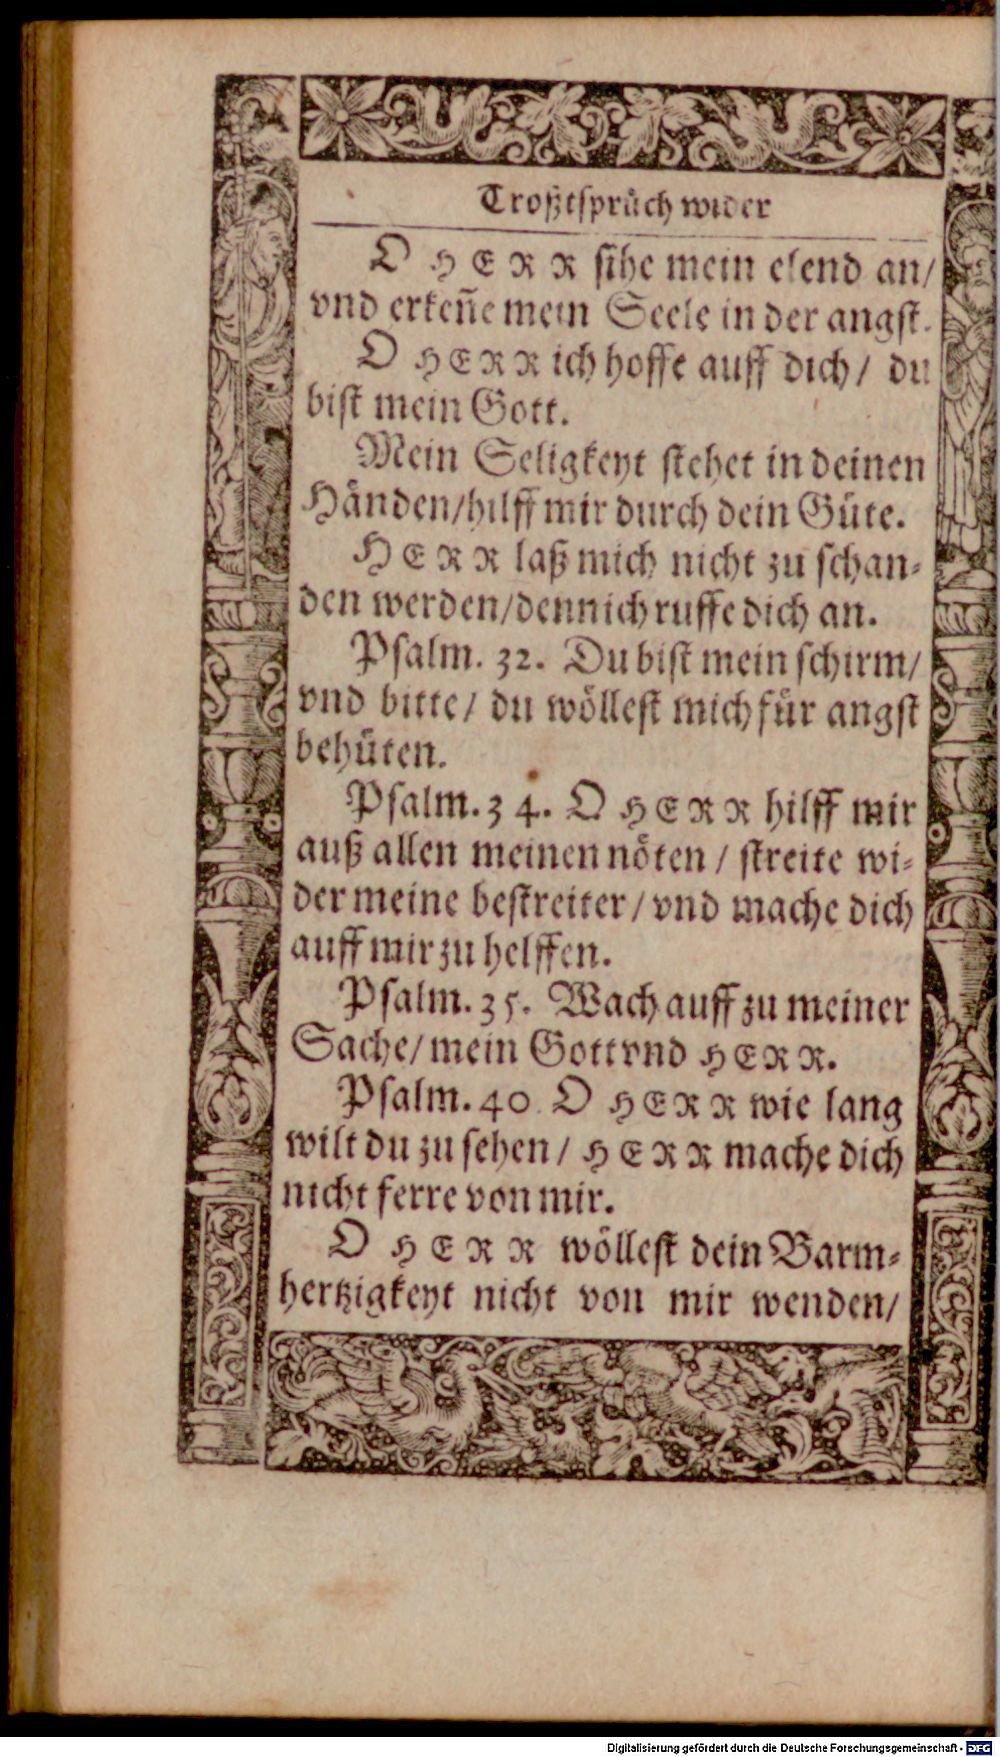 Troßtsprüch wider
O HERR sihe mein elend an/
vnd erkeñe mein Seele in der angst.
O HERR ich hoffe auff dich/ du
bist mein Gott.
Mein Seligkeyt stehet in deinen
Händen/hilff mir durch dein Güte.
HERR laß mich nicht zu schan-
den werden/denn ich ruffe dich an.
Psalm. 32. Du bist mein schirm/
vnd bitte/ du wöllest mich für angst
behüten.
Psalm. 34. O HERR hilff mir
auß allen meinen nöten/ streite wi-
der meine bestreiter/ vnd mache dich
auff mir zu helffen.
Psalm. 35. Wach auff zu meiner
Sache/ mein Gott vnd HERR.
Psalm. 40. O HERR wie lang
wilt du zu sehen/ HERR mache dich
nicht ferre von mir.
O HERR wöllest dein Barm-
hertzigkeyt nicht von mir wenden/
Digitalisierung gefördert durch die Deutsche Forschungsgemeinschaft - DFG